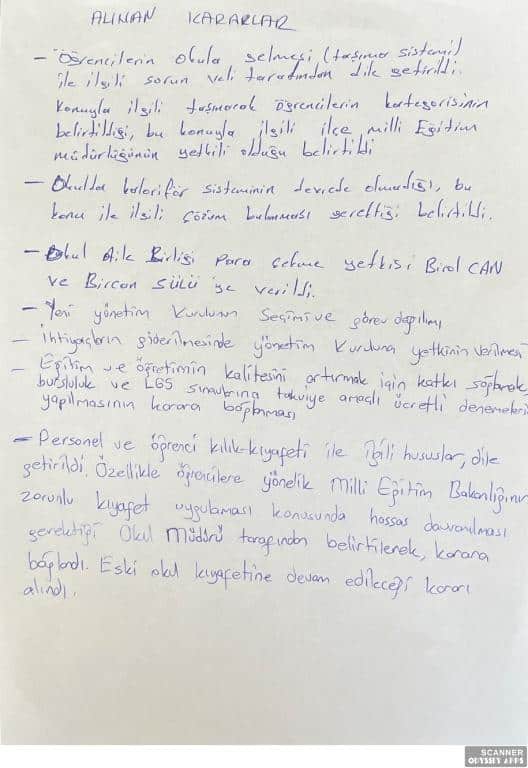 ALINAN KARARLAR
- Öğrencilerin okula gelmesi (taşıma sistemi)
ile ilgili sorun veli tarafından dile getirildi.
Konuyla ilgili taşınacak öğrencilerin kategorisinin
belirtildiği, bu konuyla ilgili ilçe milli Eğitim
müdürlüğünün yetkili olduğu belirtildi
- Okulda kalorifer sisteminin devrede olmadığı, bu
konu ile ilgili çözüm bulunması gerektiği belirtildi.
- Okul Aile Birliği para çekme yetkisi Birol CAN
ve Bircan SÜLÜ'ye verildi.
- Yeni yönetim kurulunun seçimi ve görev dağılımı
- ihtiyaçların giderilmesinde yönetim kuruluna yetkinin verilmesi
- Eğitim ve öğretimin kalitesini artırmak için katkı sağlamak,
bursluluk ve LGS sınavlarına takviye amaçlı ücretli denemeleri
yapılmasının karara bağlanması
- Personel ve öğrenci kılık-kıyafeti ile ilgili hususlar, dile
getirildi. Özellikle öğrencilere yönelik Milli Eğitim Bakanlığının
zorunlu kıyafet uygulaması konusunda hassas davranılması
gerektiği Okul Müdürü tarafından belirtilerek, karara
bağlandı. Eski okul kıyafetine devam edileceği kararı
alındı.
SCANNER
ODYSSEY APPS